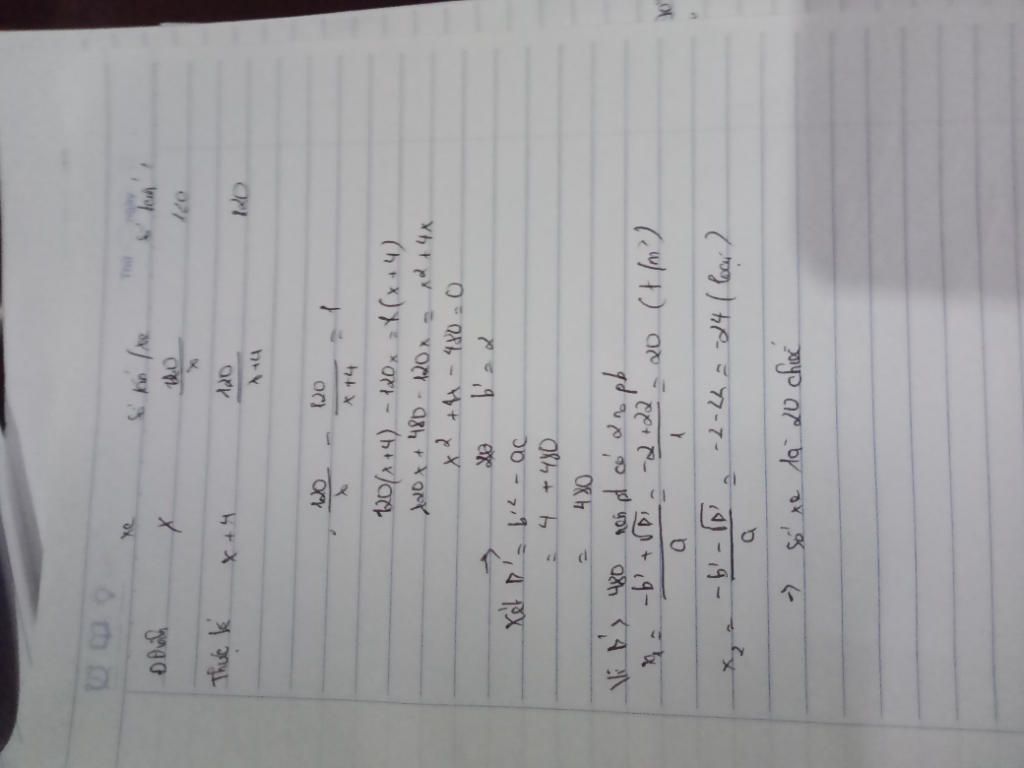 xe số tấn/xe số tấn
Dự định x 120/x 120
Thực tế x+4 120/x+4 120
120/x - 120/x+4 = 1
120(x+4) - 120x = x(x+4)
120x + 480 - 120x = x² + 4x
x² + 4x - 480 = 0
→ b' = 2
Xét Δ' = b'² - ac
= 4 + 480
= 480
Vì Δ' > 480 nên pt có 2 n₀ pb
x₁ = -b' + √Δ' / a = -2 + 22 / 1 = 20 (t/m)
x₂ = -b' - √Δ' / a = -2 - 22 = -24 (loại)
→ Số xe là 20 chiếc